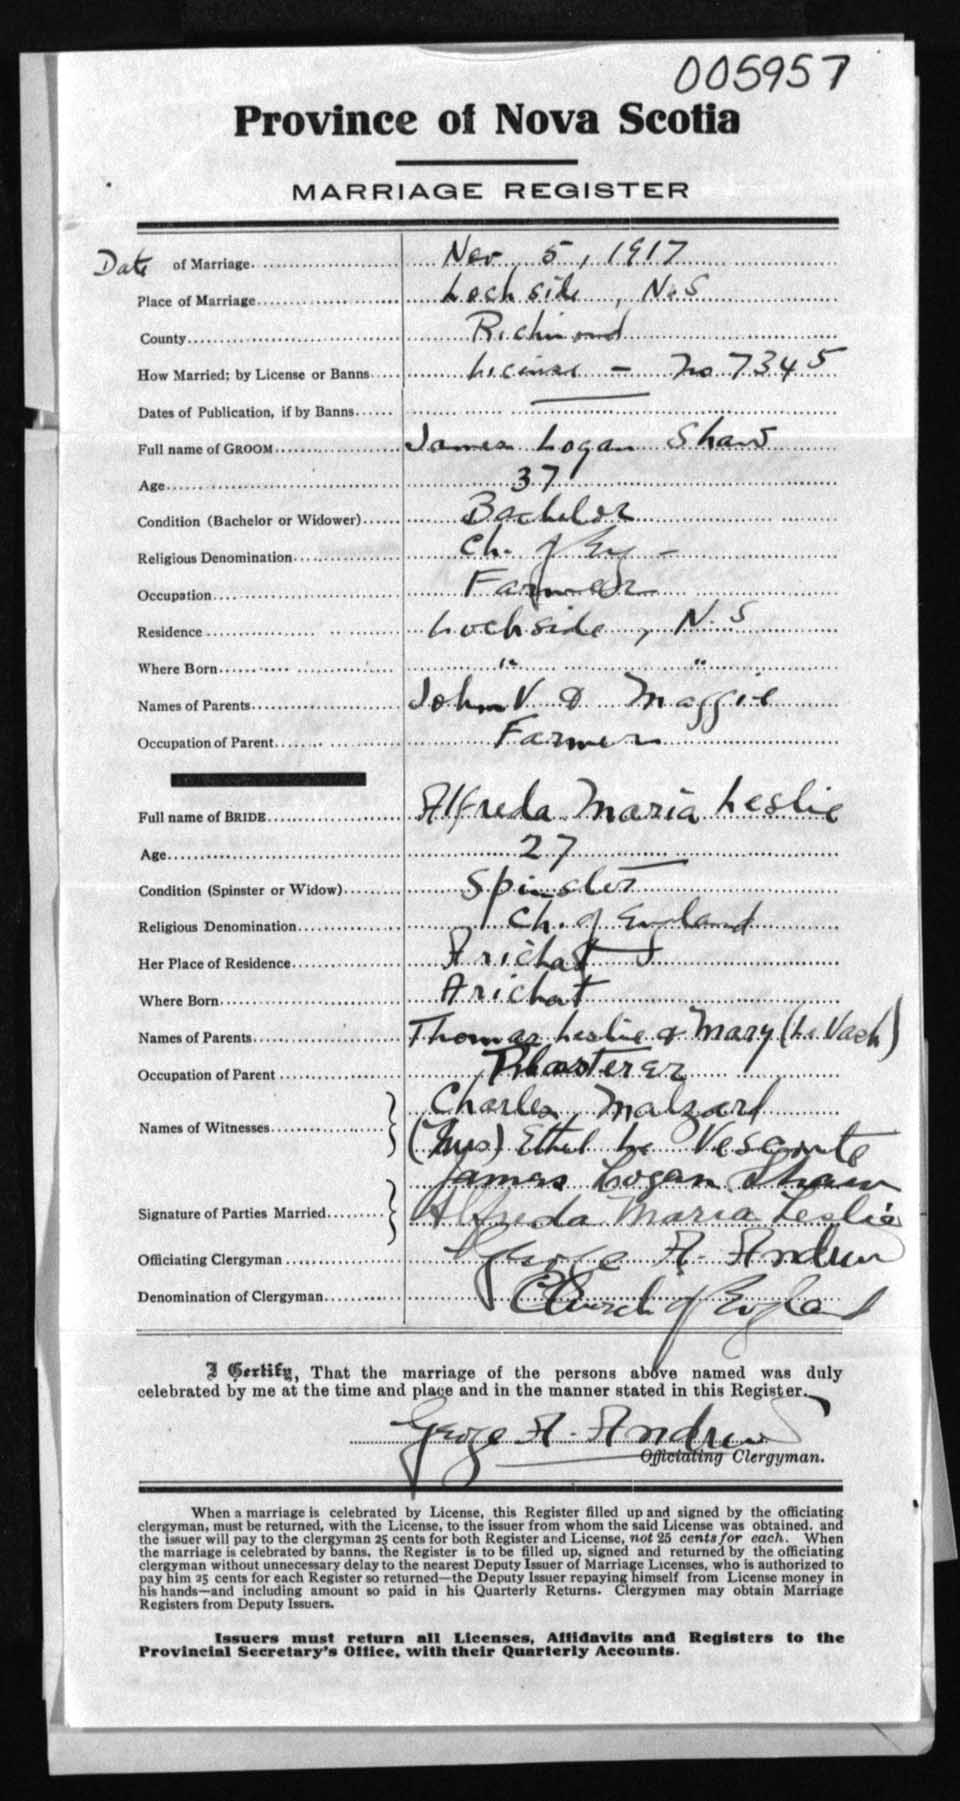 005957
Province of Nova Scotia
MARRIAGE REGISTER
Date of Marriage Nov 5, 1917
Place of Marriage Loch side, N.S
County Richmond
How Married; by License or Banns License - No 7345
Dates of Publication, if by Banns
Full name of GROOM James Logan Shaw
Age 37
Condition (Bachelor or Widower) Bachelor
Religious Denomination Ch. of Eng -
Occupation Farmer
Residence Lochside, N.S
Where Born " "
Names of Parents John V & Maggie
Occupation of Parent Farmer
Full name of BRIDE Alfreda Maria Leslie
Age 27
Condition (Spinster or Widow) Spinster
Religious Denomination Ch. of England
Her Place of Residence Arichat
Where Born Arichat
Names of Parents Thomas Leslie & Mary (Le Vach)
Occupation of Parent Plasterer
Names of Witnesses Charles Malzard
(Mrs) Ethel Le Vesconte
Signature of Parties Married James Logan Shaw
Alfreda Maria Leslie
Officiating Clergyman George A. Andrew
Denomination of Clergyman Church of England
I Certify, That the marriage of the persons above named was duly
celebrated by me at the time and place and in the manner stated in this Register.
George A. Andrew
Officiating Clergyman.
When a marriage is celebrated by License, this Register filled up and signed by the officiating
clergyman, must be returned, with the License, to the issuer from whom the said License was obtained. and
the issuer will pay to the clergyman 25 cents for both Register and License, not 25 cents for each. When
the marriage is celebrated by banns, the Register is to be filled up, signed and returned by the officiating
clergyman without unnecessary delay to the nearest Deputy Issuer of Marriage Licenses, who is authorized to
pay him 25 cents for each Register so returned—the Deputy Issuer repaying himself from License money in
his hands—and including amount so paid in his Quarterly Returns. Clergymen may obtain Marriage
Registers from Deputy Issuers.
Issuers must return all Licenses, Affidavits and Registers to the
Provincial Secretary's Office, with their Quarterly Accounts.